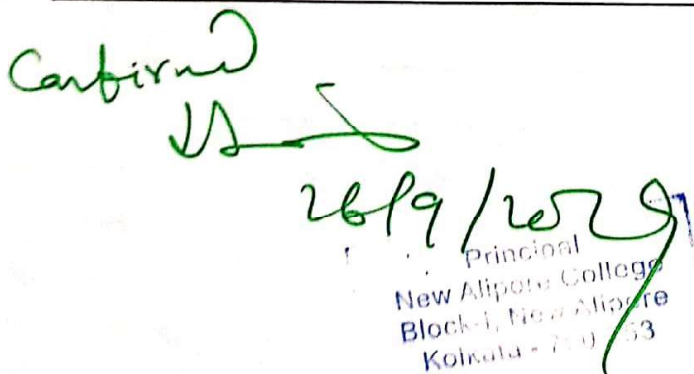 Confirmed
26/9/2029
Principal
New Alipore College
Block-L, New Alipore
Kolkata - 700 053